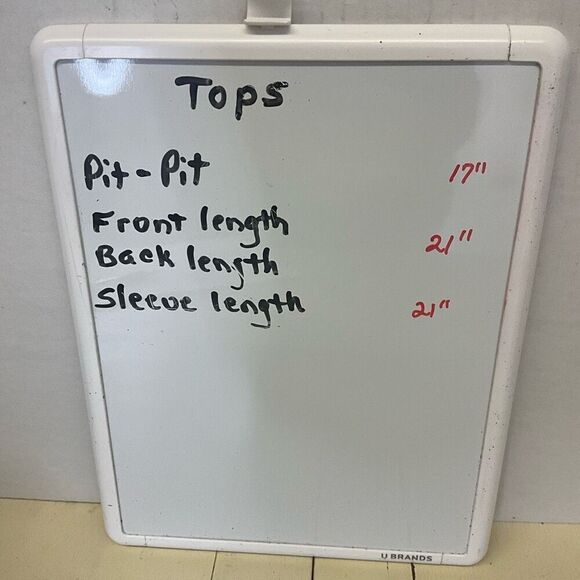 Tops
Pit - Pit 17"
Front length
21"
Back length
Sleeve length 21"
U BRANDS